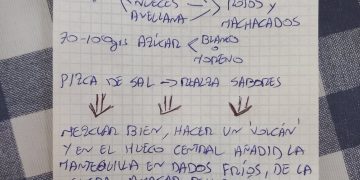 NUECES
AVELLANA → ROTOS Y
MACHACADOS
70-100grs AZÚCAR < BLANCO
O
MORENO
PIZCA DE SAL → REALZA SABORES
MEZCLAR BIEN, HACER UN "VOLCÁN"
Y EN EL HUECO CENTRAL AÑADID LA
MANTEQUILLA EN DADOS FRÍOS, DE LA